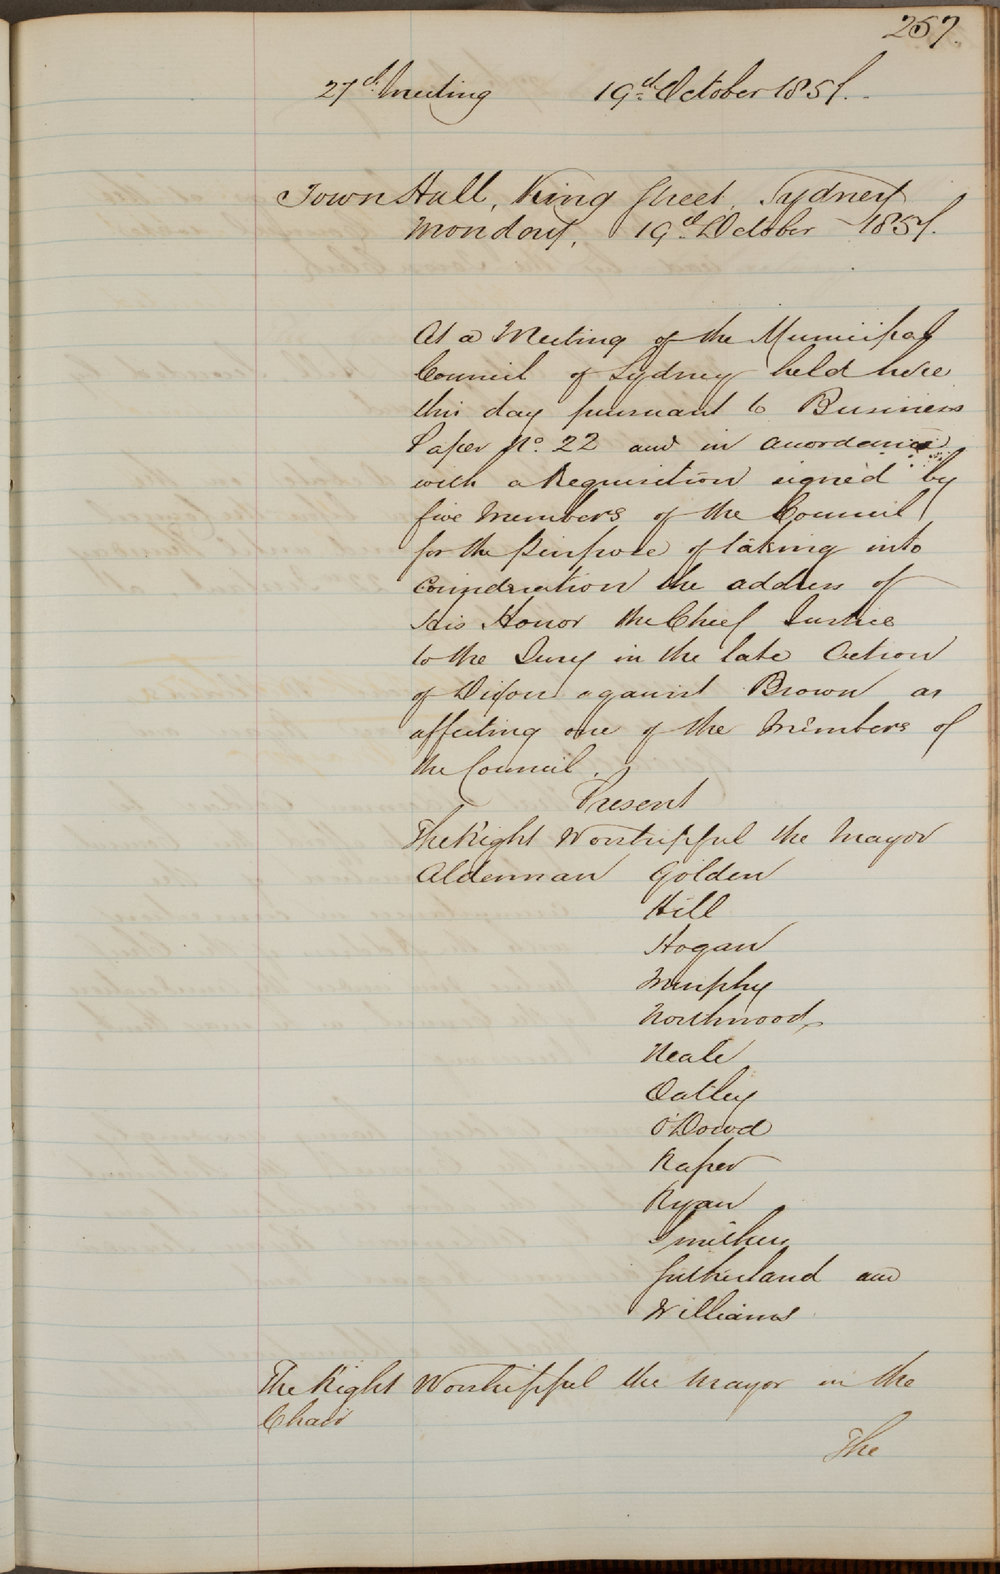 257
27th Meeting 19th October 1857.
Town Hall, King Street, Sydney
Monday, 19th October 1857.
At a Meeting of the Municipal
Council of Sydney held here
this day pursuant to Business
Paper No. 22 and in accordance
with a Requisition signed by
five Members of the Council
for the purpose of taking into
Consideration the address of
His Honor the Chief Justice
to the Jury in the late Action
of Dixon against Brown as
affecting one of the Members of
the Council.
Present
The Right Worshipful the Mayor
Alderman Golden
Hill
Hogan
Murphy
Northwood
Neale
Oatley
O'Dowd
Raper
Ryan
Smithers
Sutherland and
Williams
The Right Worshipful the Mayor in the
Chair
The